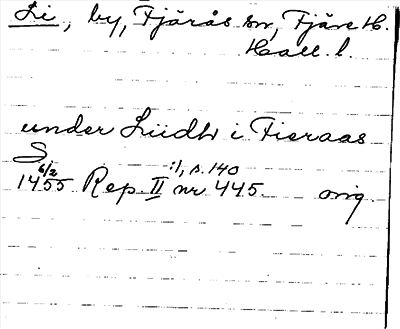 Li, by, Fjärås sn, Fjäre H.
Hall. l.
under Lüdh i Fieraas
S
6/2 1455 Rep. II :1, s. 140 nr 445. orig.